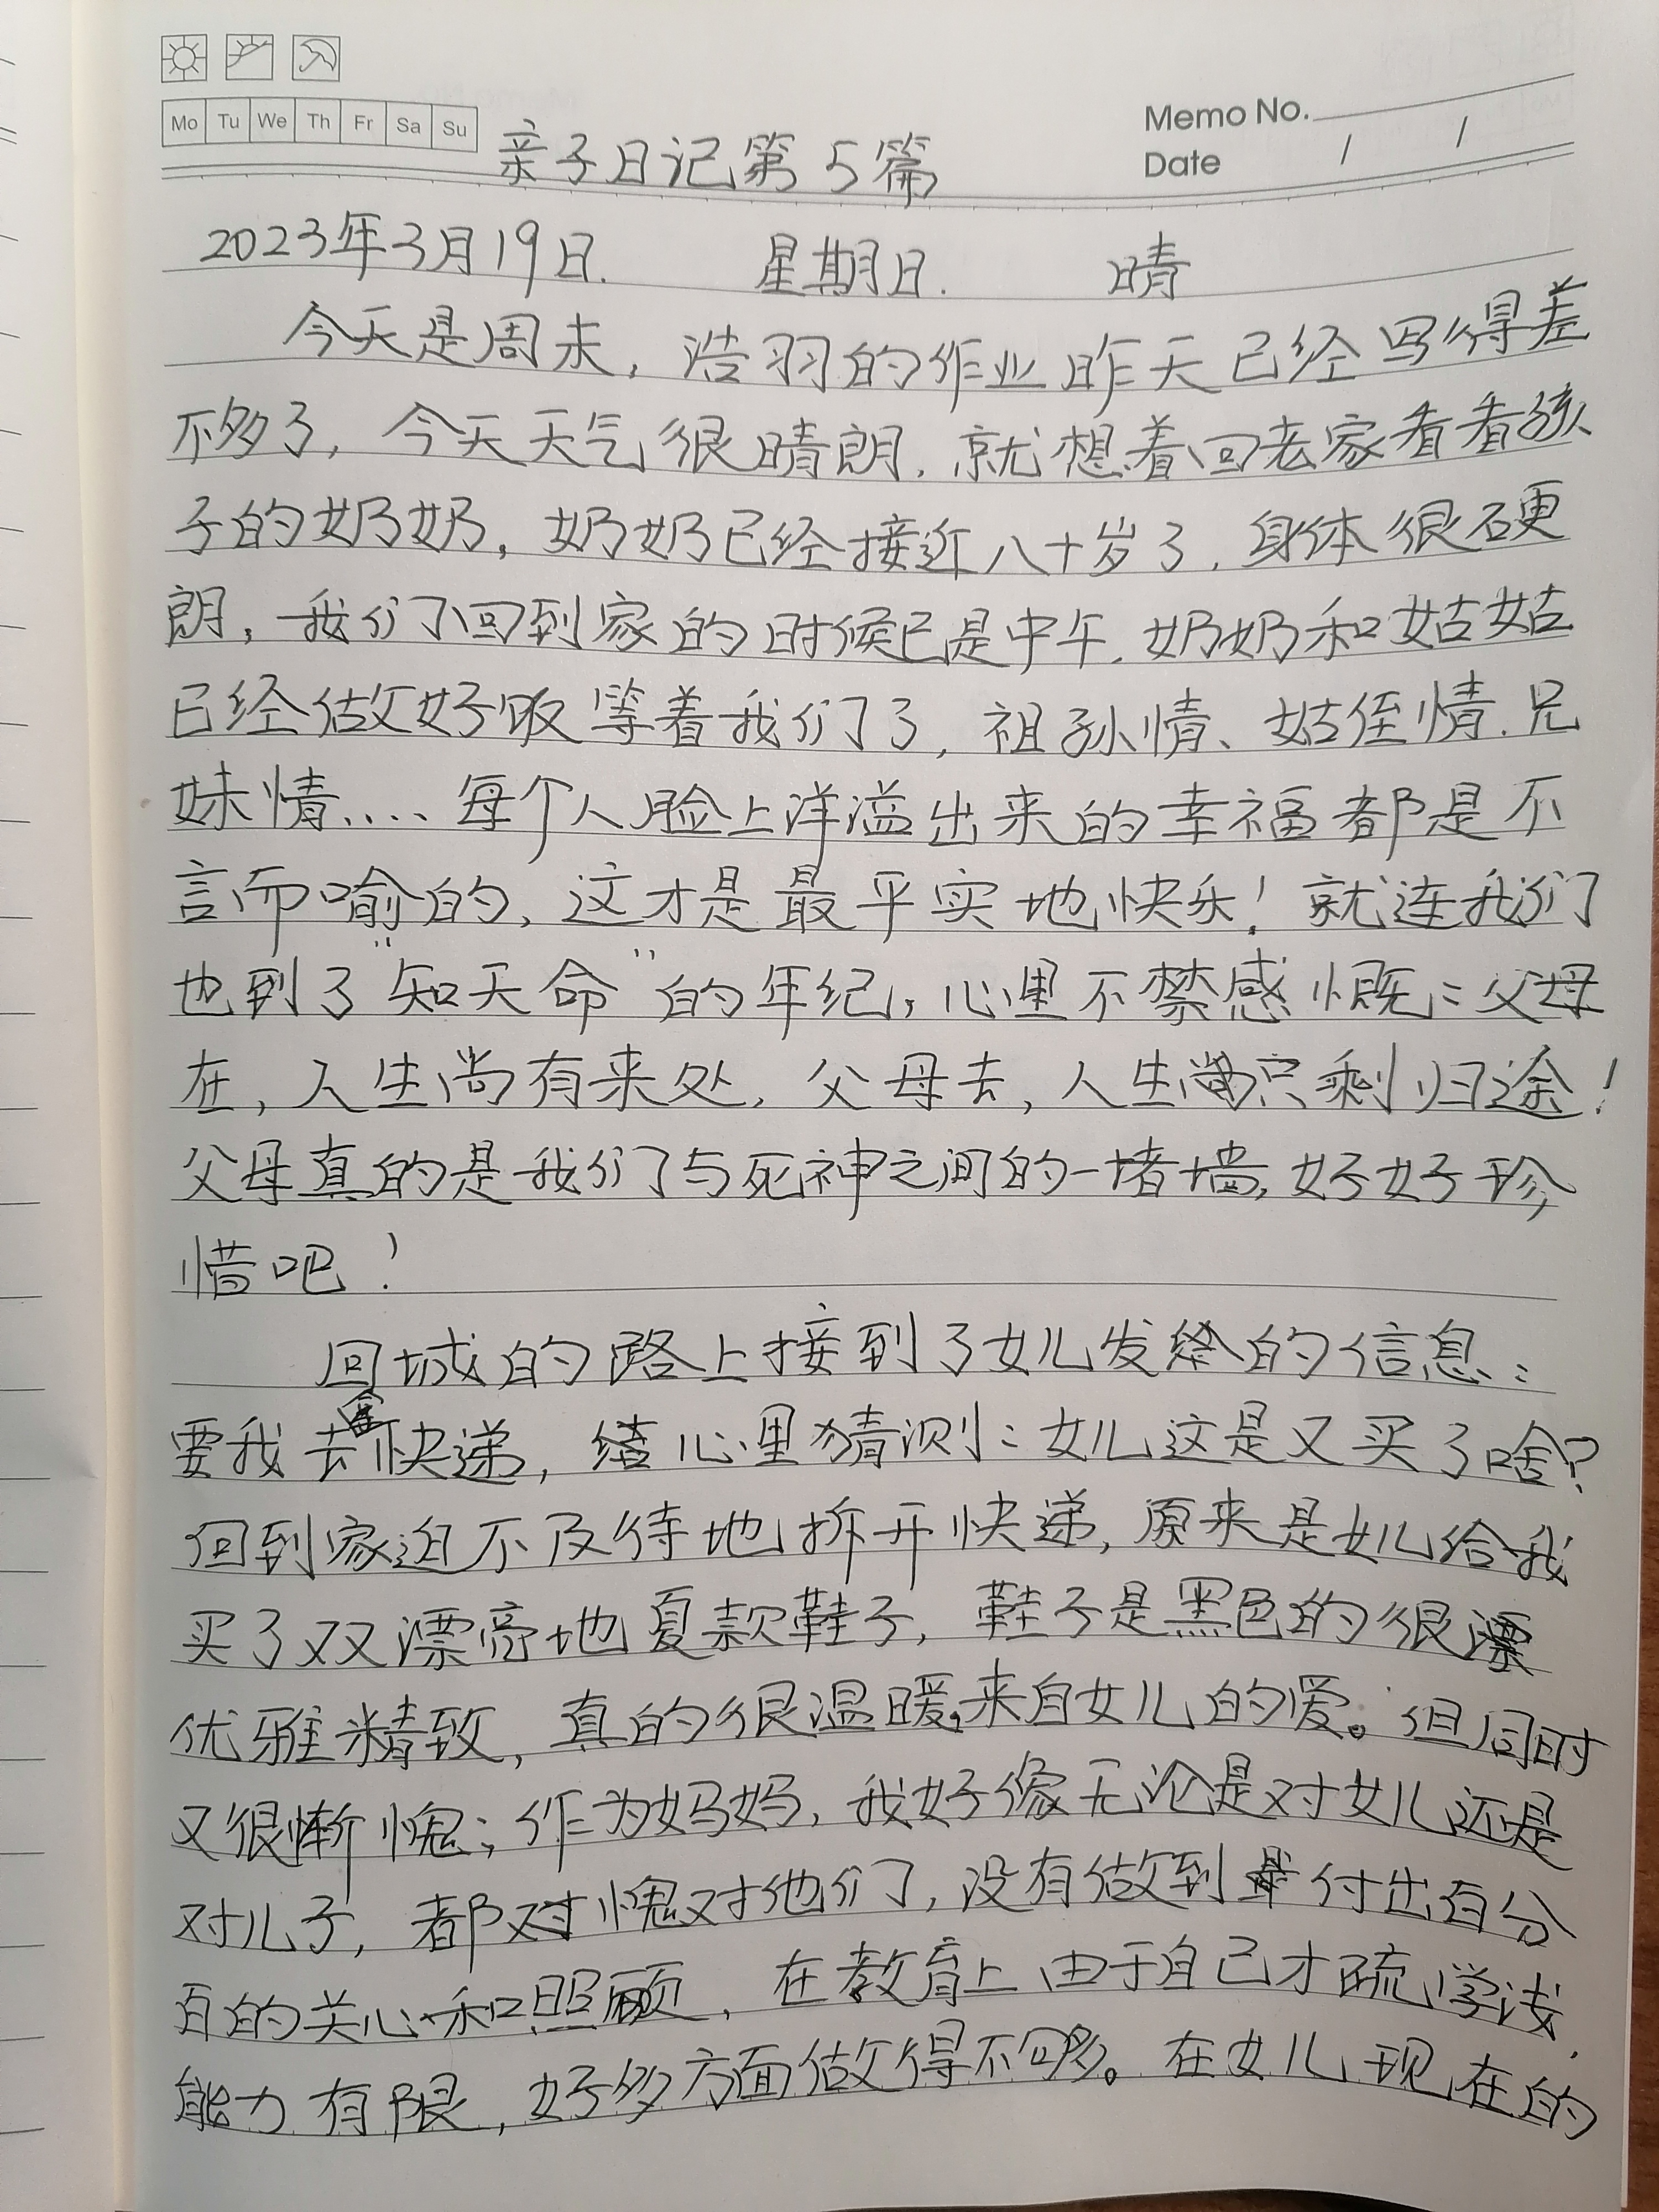 Mo Tu We Th Fr Sa Su
Memo No.
Date / /
亲子日记第5篇
2023年3月19日. 星期日. 晴
今天是周末,浩羽的作业昨天已经写得差
不多了,今天天气很晴朗,就想着回老家看看孩
子的奶奶,奶奶已经接近八十岁了,身体很硬
朗,我们回到家的时候已是中午,奶奶和姑姑
已经做好饭等着我们了,祖孙情、姑侄情、兄
妹情....每个人脸上洋溢出来的幸福都是不
言而喻的,这才是最平实地快乐!就连我们
也到了"知天命"的年纪,心里不禁感慨:父母
在,人生尚有来处,父母去,人生只剩归途!
父母真的是我们与死神之间的一堵墙,好好珍
惜吧!
回城的路上接到了女儿发给的信息:
要我去拿快递,心里猜测:女儿这是又买了啥?
回到家迫不及待地拆开快递,原来是女儿给我
买了双漂亮地夏款鞋子,鞋子是黑色的很漂
优雅精致,真的很温暖,来自女儿的爱。但同时
又很惭愧;作为妈妈,我好像无论是对女儿还是
对儿子,都对愧对他们,没有做到付出百分
百的关心和照顾,在教育上由于自己才疏学浅,
能力有限,好多方面做得不够。在女儿现在的